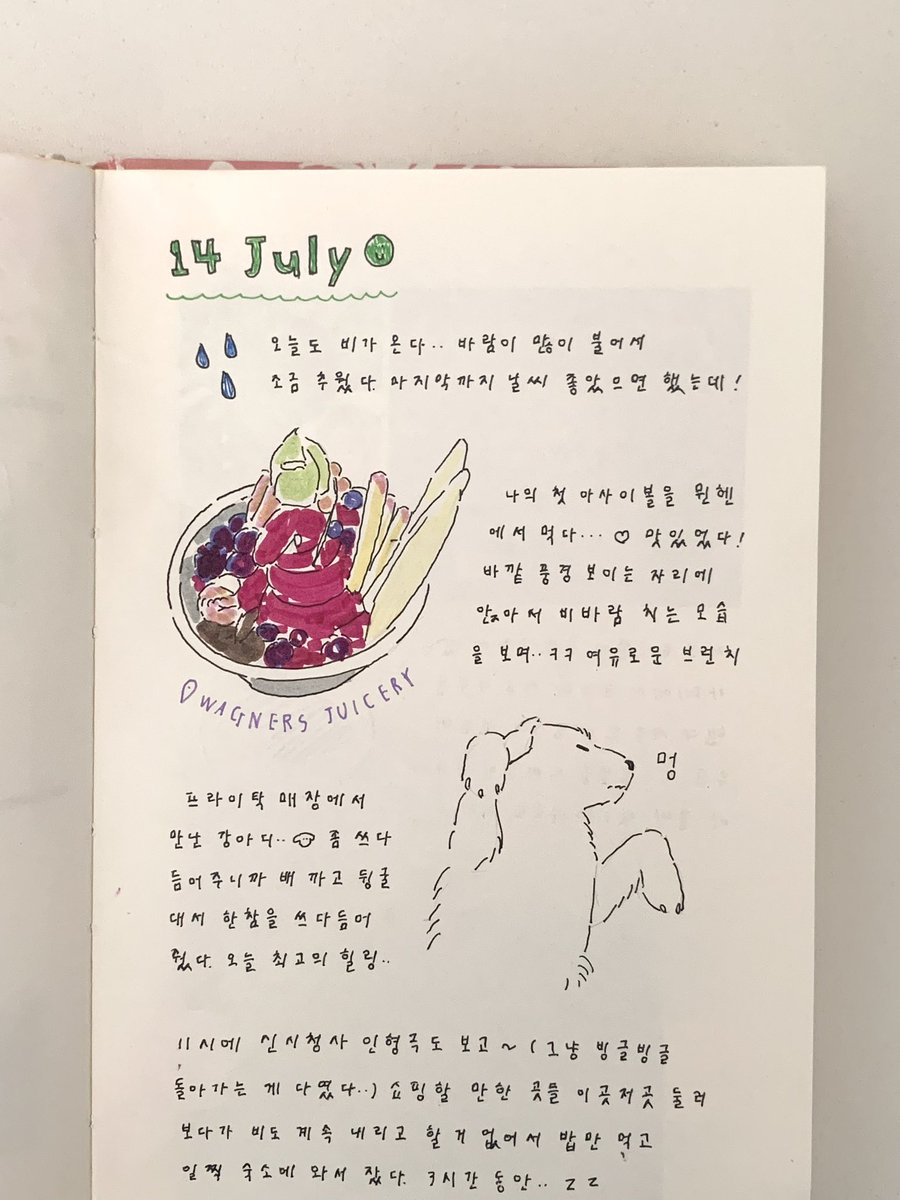 14 July
오늘도 비가 온다.. 바람이 많이 불어서
조금 추웠다. 마지막까지 날씨 좋았으면 했는데!
나의 첫 아사이볼을 뮌헨
에서 먹다... ♡ 맛있었다!
바깥 풍경 보이는 자리에
앉아서 비바람 치는 모습
을 보며.. ㅋㅋ 여유로운 브런치
WAGNERS JUICERY
멍
프라이탁 매장에서
만난 강아디.. 좀 쓰다
듬어주니까 배 까고 뒹굴
대서 한참을 쓰다듬어
줬다. 오늘 최고의 힐링..
11시에 신시청사 인형극도 보고 ~ (그냥 빙글빙글
돌아가는 게 다였다..) 쇼핑할 만한 곳들 이곳저곳 둘러
보다가 비도 계속 내리고 할 거 없어서 밥만 먹고
일찍 숙소에 와서 잤다. 3시간 동안.. z z